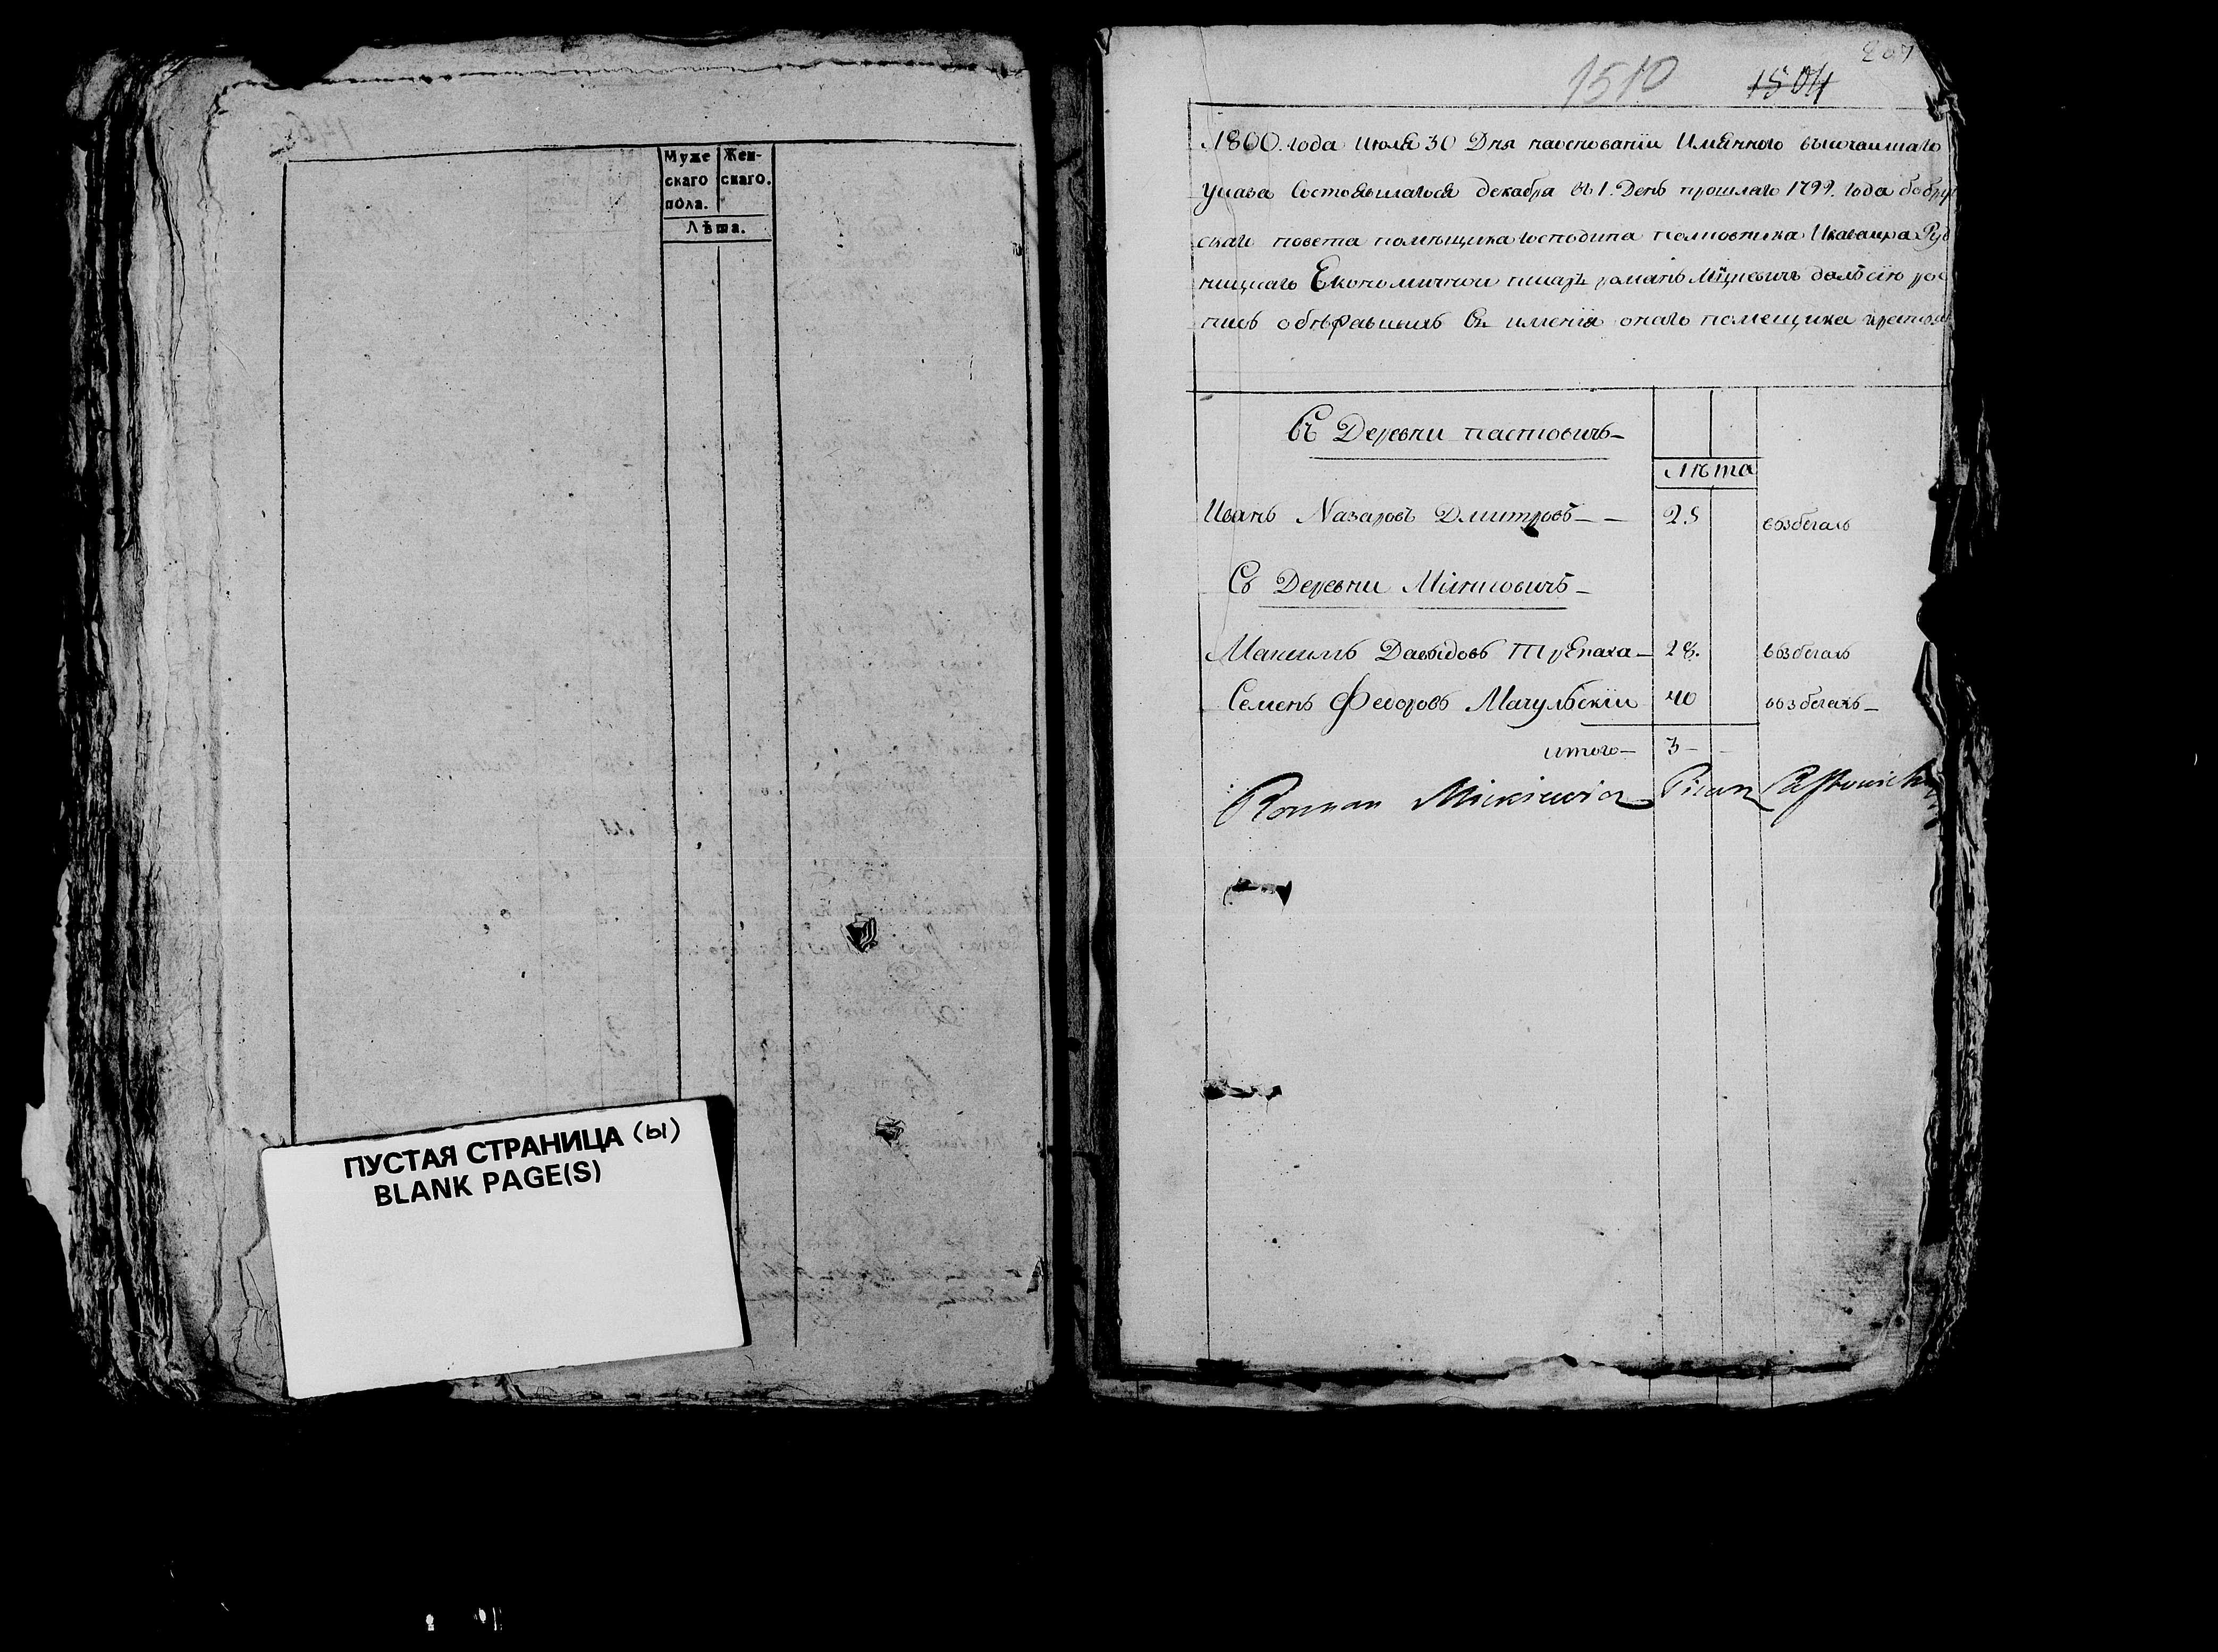 Муже Жен-
скаго скаго.
пола.
Лѣта.
ПУСТАЯ СТРАНИЦА (Ы)
BLANK PAGE(S)
267
1510 1504
1800. года Июля 30 Дня наосновании Имяннаго высочаишаго
указа Состоявшагося декабря въ 1. День прошлаго 1799. года бобруй
скаго повета помѣщика Господина полковника Икавалера
Економичнои писарь романъ Мицкевичь далъ сию
писъ объ въ имения онаго помещика
Съ Деревни пастовичъ
Лѣта
Иванъ Назаровъ Дмитровъ 25 взбегахъ
Съ Деревни
Максимъ Давыдовъ Трепаха 28. взбегахъ
Семенъ Федоровъ Мачульский 40 взбегахъ
итого 3
Roman Mickiewicz Pisarz